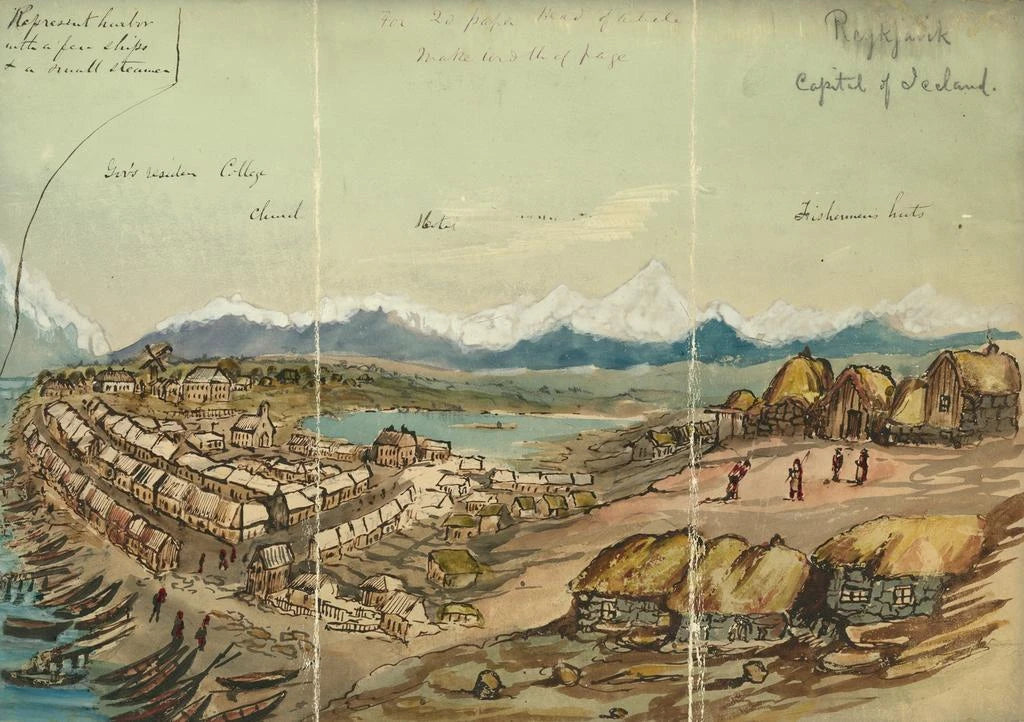 Represent harbor
with a few ships
& a small steamer
For 2d paper Head of article
Make width of page
Reykjavik
Capital of Iceland.
Gov's residen College
Church
Hotel
Fishermens huts